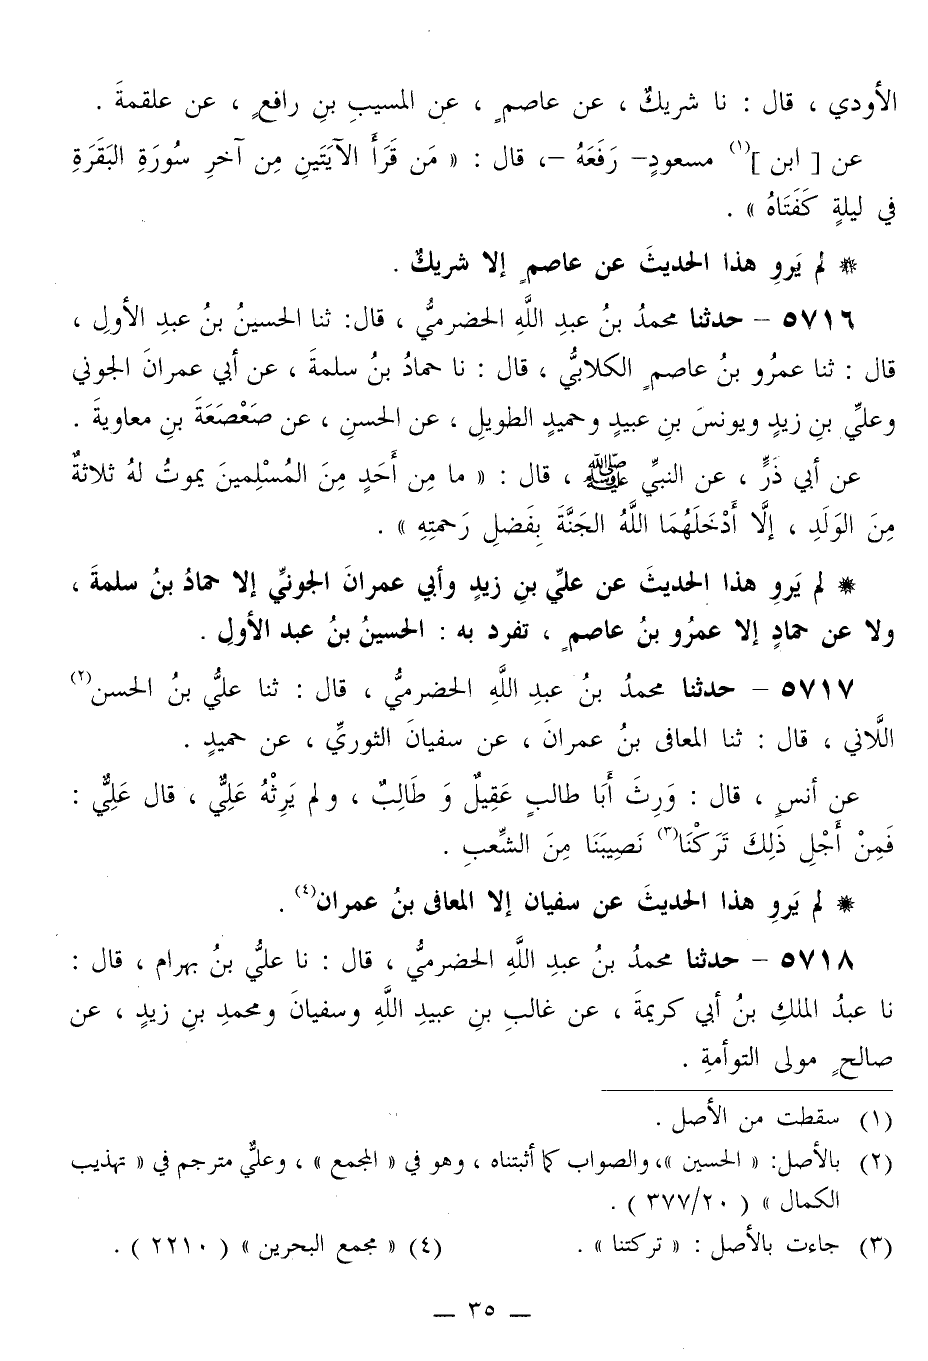 الأودي ، قال : نا شريكٌ ، عن عاصمٍ ، عن المسيبِ بنِ رافعٍ ، عن علقمةَ .
عن [ ابن ](١) مسعودٍ– رَفَعَهُ –، قال : « مَن قَرَأَ الآيَتَينِ مِن آخرِ سُورَةِ البَقَرَةِ
في ليلةٍ كَفَتَاهُ » .
* لم يَروِ هذا الحديثَ عن عاصمٍ إلا شريكٌ .
٥٧١٦ – حدثنا محمدُ بنُ عبدِ اللَّهِ الحضرميُّ ، قال: ثنا الحسينُ بنُ عبدِ الأولِ ،
قال : ثنا عمرُو بنُ عاصمٍ الكلابيُّ ، قال : نا حمادُ بنُ سلمةَ ، عن أبي عمرانَ الجوني
وعليِّ بنِ زيدٍ ويونسَ بنِ عبيدٍ وحميدٍ الطويلِ ، عن الحسنِ ، عن صَعْصَعَةَ بنِ معاويةَ .
عن أبي ذَرٍّ ، عن النبيِّ ﷺ ، قال : « ما مِن أَحَدٍ مِنَ المُسْلِمينَ يموتُ لهُ ثلاثةٌ
مِنَ الوَلَدِ ، إلَّا أَدْخَلَهُمَا اللَّهُ الجَنَّةَ بِفَضلِ رَحمتِهِ » .
* لم يَروِ هذا الحديثَ عن عليِّ بنِ زيدٍ وأبي عمرانَ الجونيِّ إلا حمادُ بنُ سلمةَ ،
ولا عن حمادٍ إلا عمرُو بنُ عاصمٍ ، تفرد به : الحسينُ بنُ عبد الأولِ .
٥٧١٧ – حدثنا محمدُ بنُ عبدِ اللَّهِ الحضرميُّ ، قال : ثنا عليُّ بنُ الحسن(٢)
اللَّاني ، قال : ثنا المعافى بنُ عمرانَ ، عن سفيانَ الثوريِّ ، عن حميدٍ .
عن أنسٍ ، قال : وَرِثَ أَبَا طالبٍ عَقِيلٌ وَ طَالِبٌ ، ولم يَرِثْهُ عَلِيٌّ ، قال عَلِيٌّ :
فَمِنْ أَجْلِ ذَلِكَ تَرَكْنَا(٣) نَصِيبَنَا مِنَ الشِّعبِ .
* لم يَروِ هذا الحديثَ عن سفيان إلا المعافى بنُ عمران(٤) .
٥٧١٨ – حدثنا محمدُ بنُ عبدِ اللَّهِ الحضرميُّ ، قال : نا عليُّ بنُ بهرام ، قال :
نا عبدُ الملكِ بنُ أبي كريمةَ ، عن غالبِ بنِ عبيدِ اللَّهِ وسفيانَ ومحمدِ بنِ زيدٍ ، عن
صالحٍ مولى التوأمةِ .
(١) سقطت من الأصل .
(٢) بالأصل: « الحسين »، والصواب كما أثبتناه ، وهو في « المجمع » ، وعليٌّ مترجم في « تهذيب
الكمال » ( ٣٧٧/٢٠ ) .
(٣) جاءت بالأصل : « تركتنا » .
(٤) « مجمع البحرين » ( ٢٢١٠ ) .
— ٣٥ —